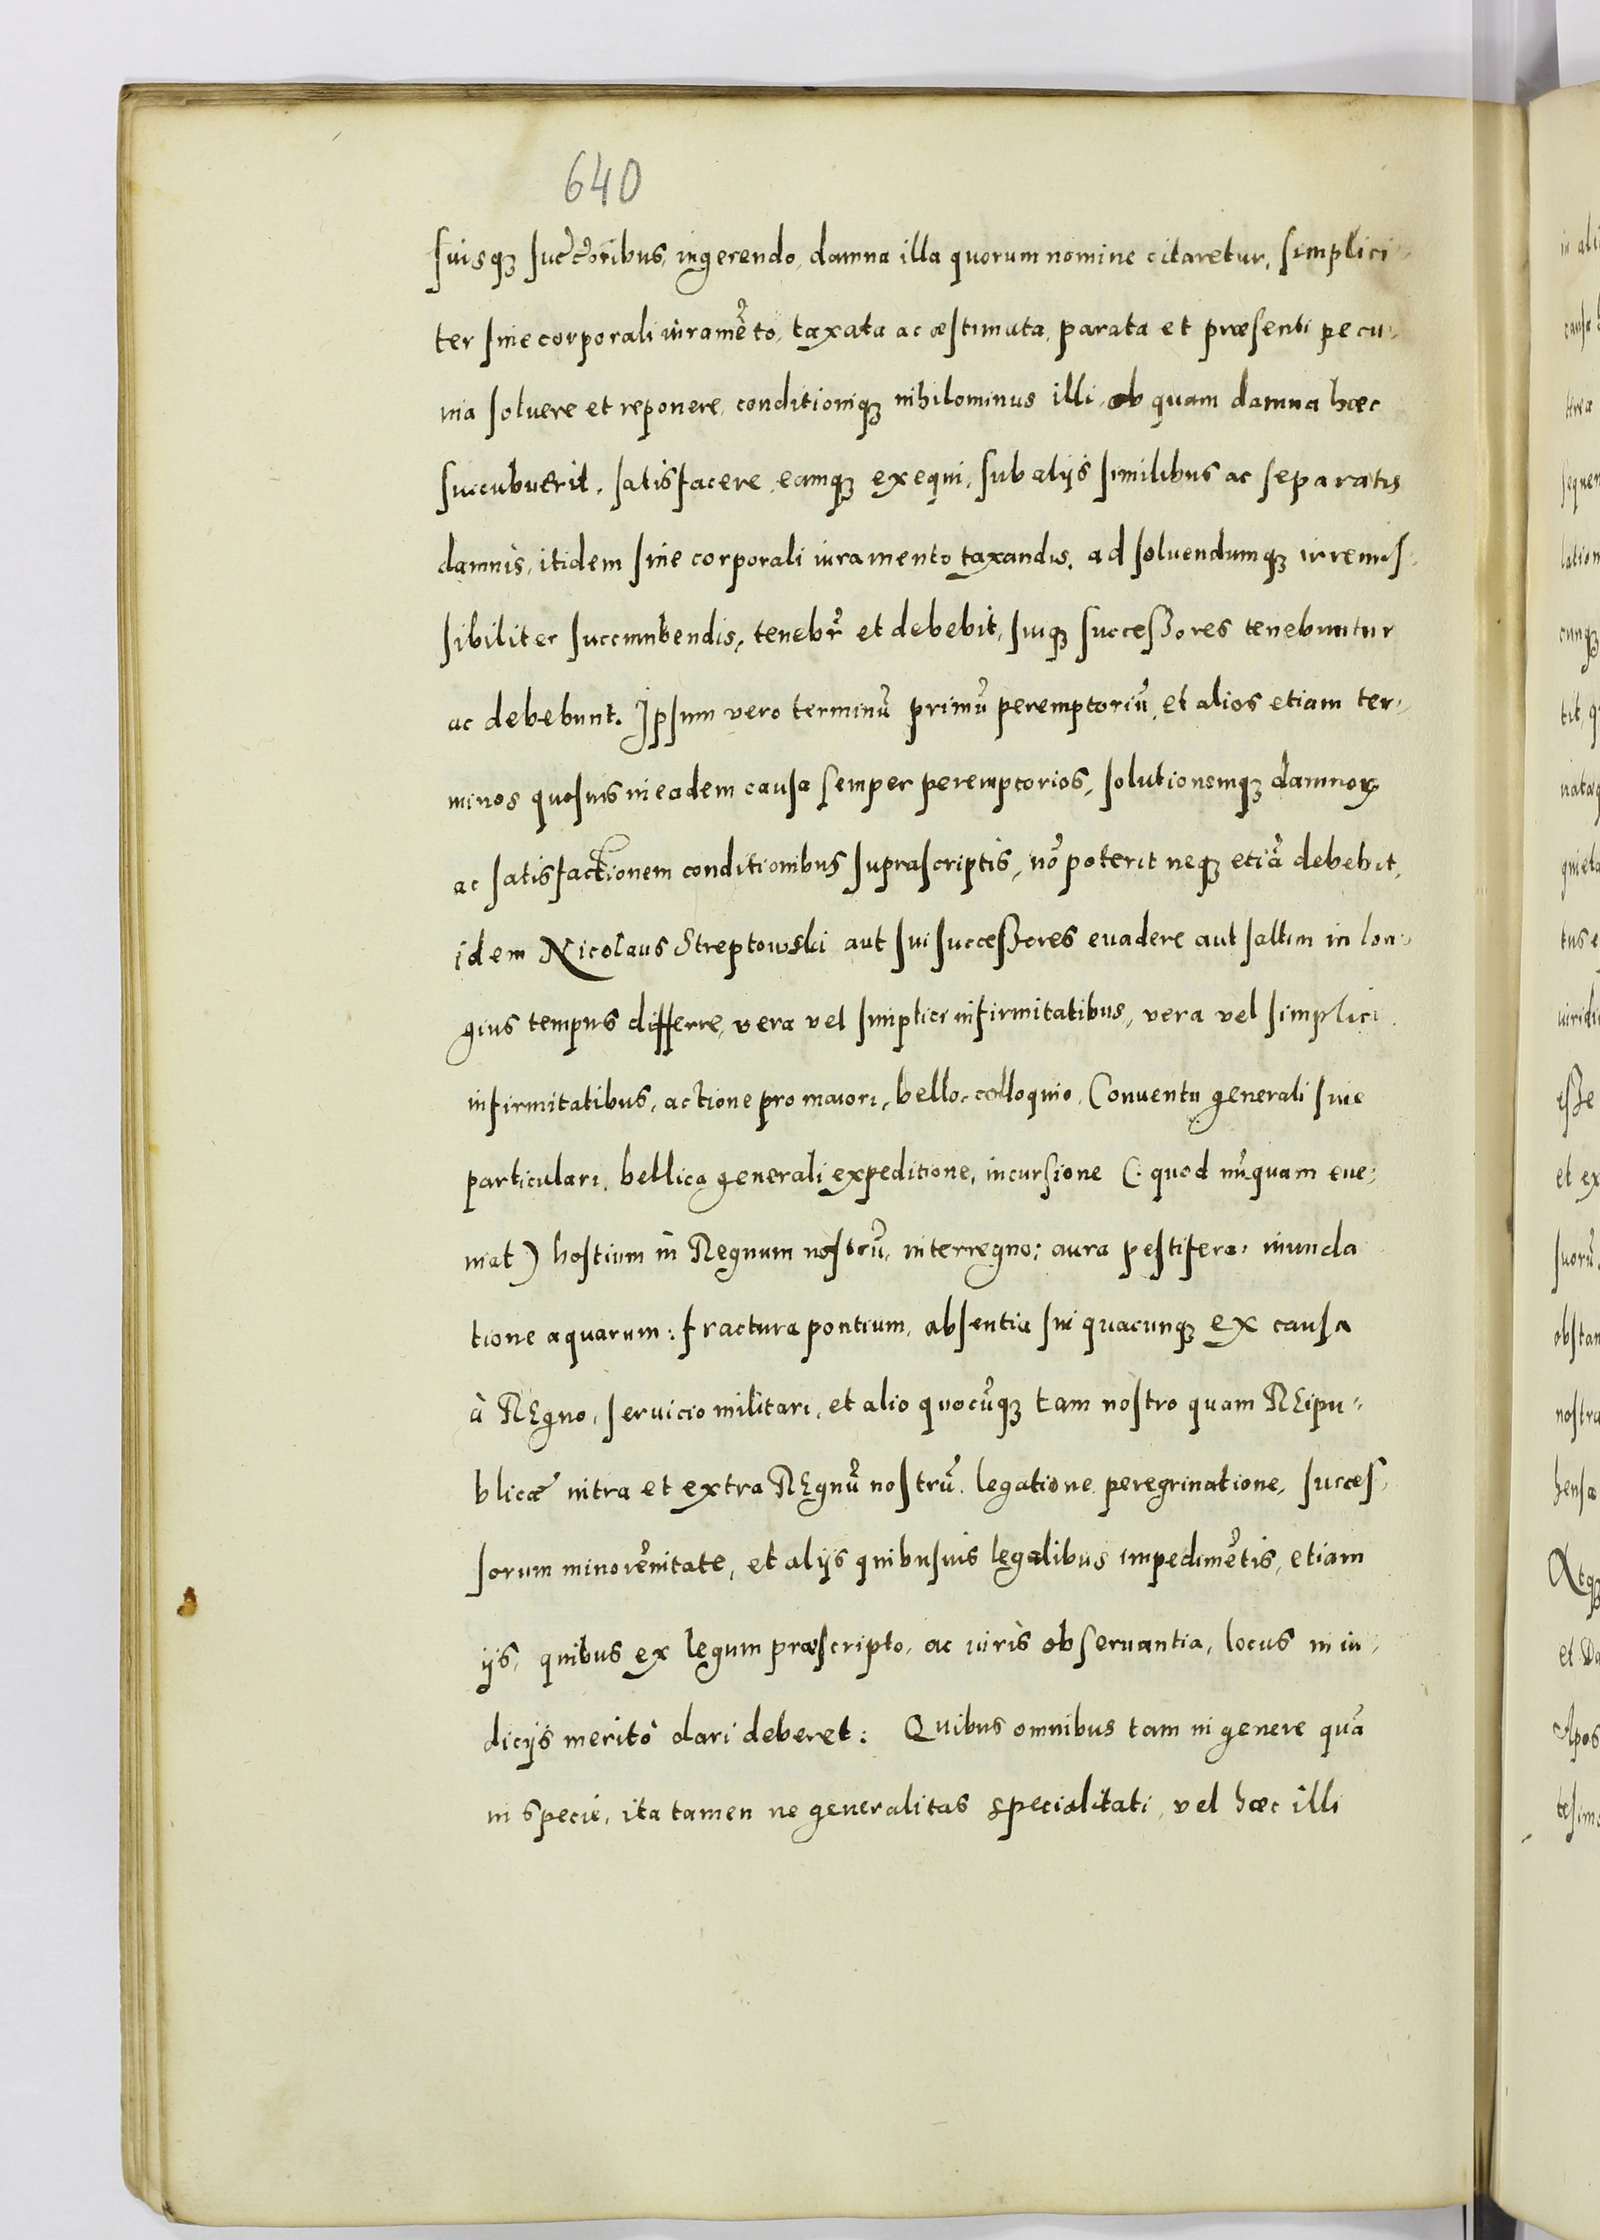 640
suisq; succ̃oribus, ingerendo, damna illa quorum nomine citaretur, simplici-
ter sine corporali iuramẽto, taxata ac æstimata, parata et præsenti pecu-
nia soluere et reponere, conditioniq; nihilominus illi, ob quam damna hæc
succubuerit, satisfacere, eamq; exequi, sub alijs similibus ac separatis
damnis, itidem sine corporali iuramento taxandis, ad soluendumq; irremis-
sibiliter succumbendis, tenebr̃ et debebit, suiq; successores tenebuntur
ac debebunt. Ipsum vero terminũ primũ peremptoriũ, et alios etiam ter-
minos quosuis in eadem causa semper peremptorios, solutionemq; damnoꝝ
ac satisfactionem conditionibus suprascriptis, nõ poterit neq; etiã debebit,
idem Nicolaus Streptowski aut sui successores euadere aut saltim in lon-
gius tempus differre, vera vel simplici infirmitatibus, vera vel simplici
infirmitatibus, actione pro maiori, bello, colloquio, Conuentu generali siue
particulari, bellica generali expeditione, incursione (: quod nũquam eue-
niat) hostium in Regnum nostrũ, interregno: aura pestifera, inunda
tione aquarum: fractura pontium, absentia sui quacunq; ex causa
à REgno, seruicio militari, et alio quocũq; tam nostro quam REipu-
blicæ intra et extra REgnũ nostrũ, legatione, peregrinatione, succes-
sorum minorẽnitate, et alijs quibusuis legalibus impedimẽtis, etiam
ijs, quibus ex legum præscripto, ac iuris obseruantia, locus in iu-
dicijs meritò dari deberet: Quibus omnibus tam in genere quã
in specie, ita tamen ne generalitas specialitati, vel hæc illi